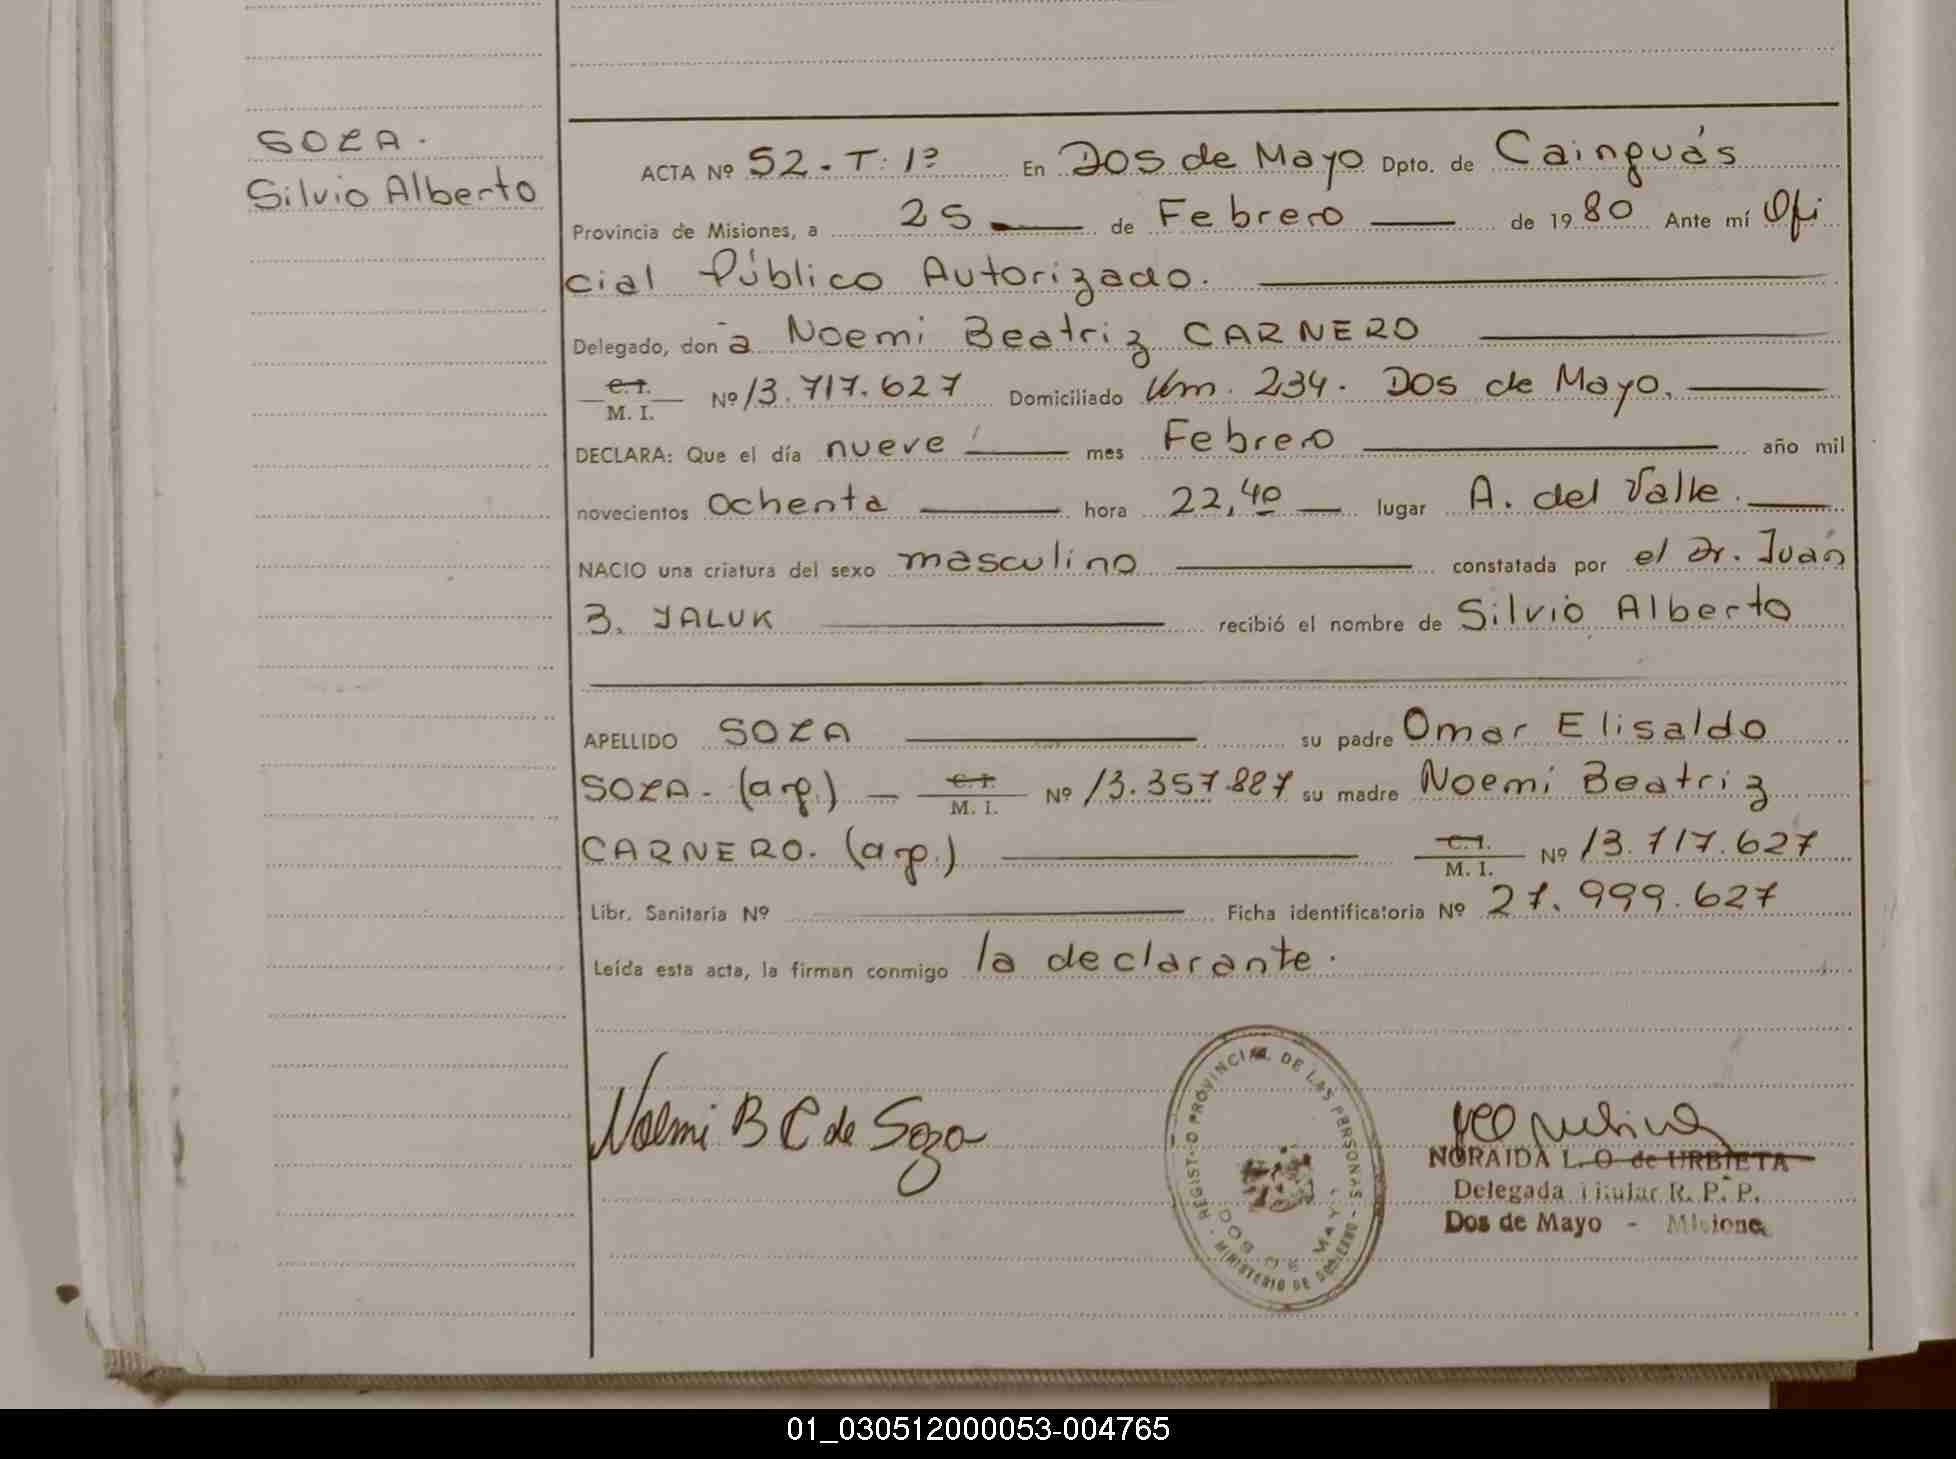 SOZA.
Silvio Alberto
ACTA Nº 52 - T. 1º En Dos de Mayo Dpto. de Cainguás
Provincia de Misiones, a 25 de Febrero de 1980 Ante mí Ofi
cial Público Autorizado.
Delegado, don a Noemi Beatriz CARNERO
C. I. M. I. Nº 13.717.627 Domiciliado Km. 234. Dos de Mayo.
DECLARA: Que el día nueve mes Febrero año mil
novecientos ochenta hora 22,40 lugar A. del Valle.
NACIO una criatura del sexo masculino constatada por el Dr. Juán
3. YALUK recibió el nombre de Silvio Alberto
APELLIDO SOZA su padre Omar Elisaldo
SOZA - (arg.) C. I. M. I. Nº 13.357.887 su madre Noemi Beatriz
CARNERO. (arg.) C. I. M. I. Nº 13.717.627
Libr. Sanitaria Nº Ficha identificatoria Nº 27.999.627
Leída esta acta, la firman conmigo la declarante.
Noemi B C de Soza
REGISTRO PROVINCIAL DE LAS PERSONAS
MINISTERIO DE GOBIERNO
DOS DE MAYO
NORAIDA L. O de URBIETA
Delegada Titular R. P. P.
Dos de Mayo - Misiones
01_030512000053-004765